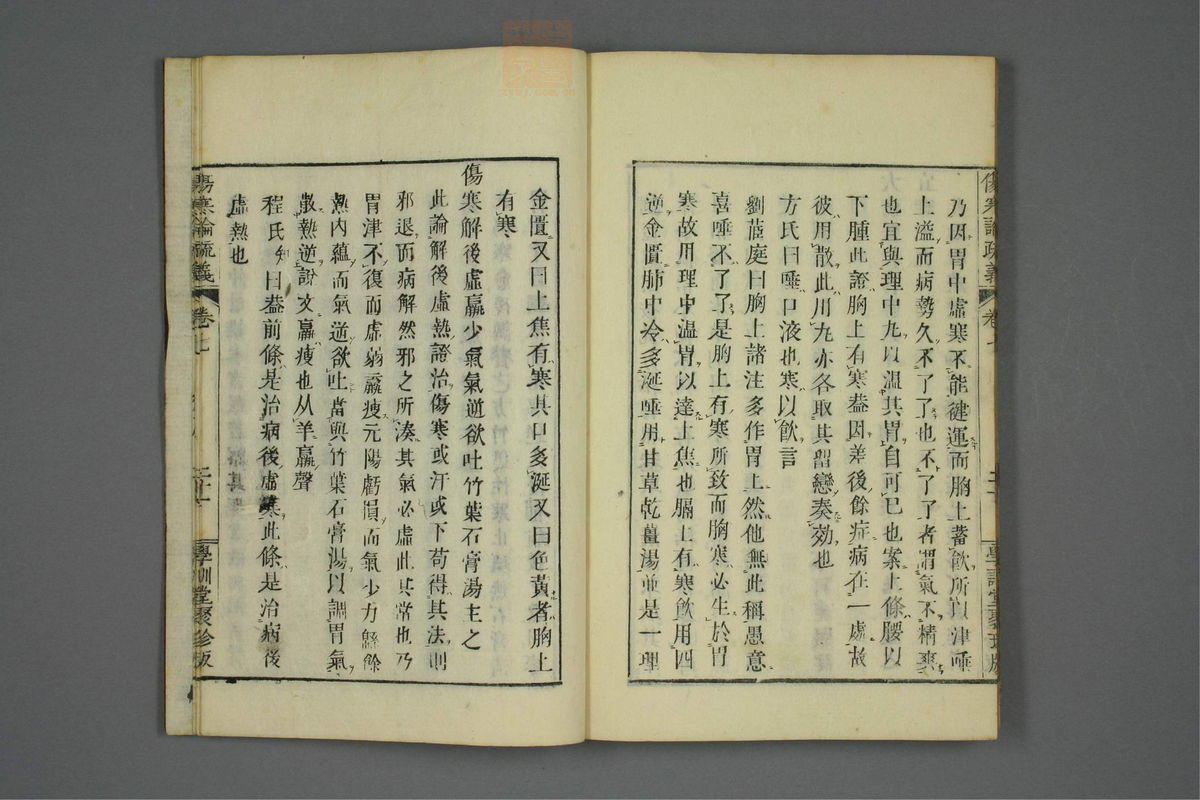 傷寒論疏義
卷七
乃因胃中虛寒不能健運而胸上蓄飮所以津唾
上溢而病勢久不了了也不了了者謂氣不精爽
也宜與理中丸以溫其胃自可已也案上條腰以
下腫此證胸上有寒葢因差後餘症病在一處故
彼用散此用丸亦各取其留戀奏効也
方氏曰唾口液也寒以飮言
劉茝庭曰胸上諸注多作胃上然他無此稱愚意
喜唾不了了是胸上有寒所致而胸寒必生於胃
寒故用理中溫胃以達上焦也膈上有寒飮用四
逆金匱肺中冷多涎唾用甘草乾薑湯並是一理
金匱又曰上焦有寒其口多涎又曰色黃者胸上
有寒
傷寒解後虛羸少氣氣逆欲吐竹葉石膏湯主之
此論解後虛熱證治傷寒或汗或下苟得其法則
邪退而病解然邪之所湊其氣必虛此其常也乃
胃津不復而虛弱羸痩元陽虧損而氣少力緜餘
熱內蘊而氣逆欲吐當與竹葉石膏湯以調胃氣
散熱逆說文羸痩也从羊𣎆聲
程氏知曰葢前條是治病後虛寒此條是治病後
虛熱也
傷寒論疏義
卷七
學訓堂聚珍版